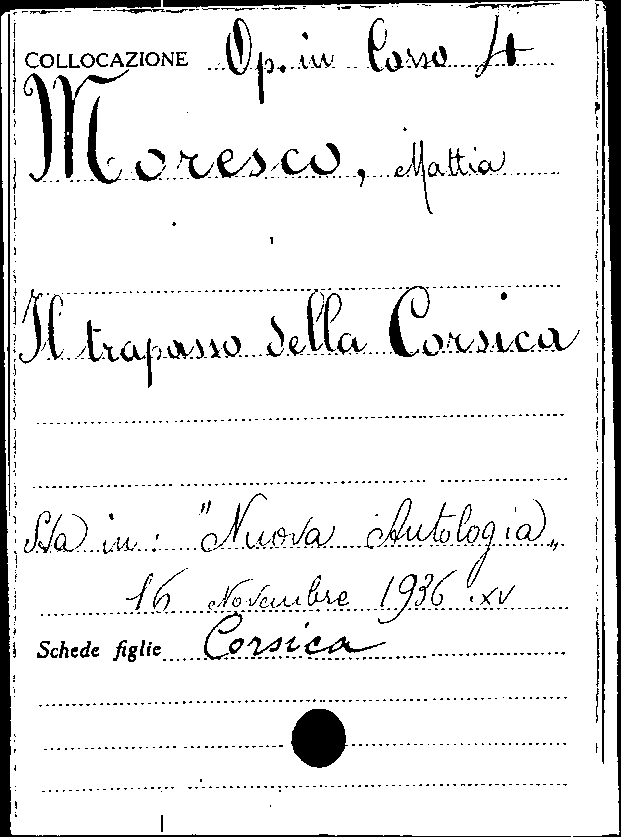 COLLOCAZIONE Op. in Corso 4
Moresco, Mattia
Il trapasso della Corsica
Sta in: "Nuova Antologia„
16 Novembre 1936. XV
Schede figlie Corsica